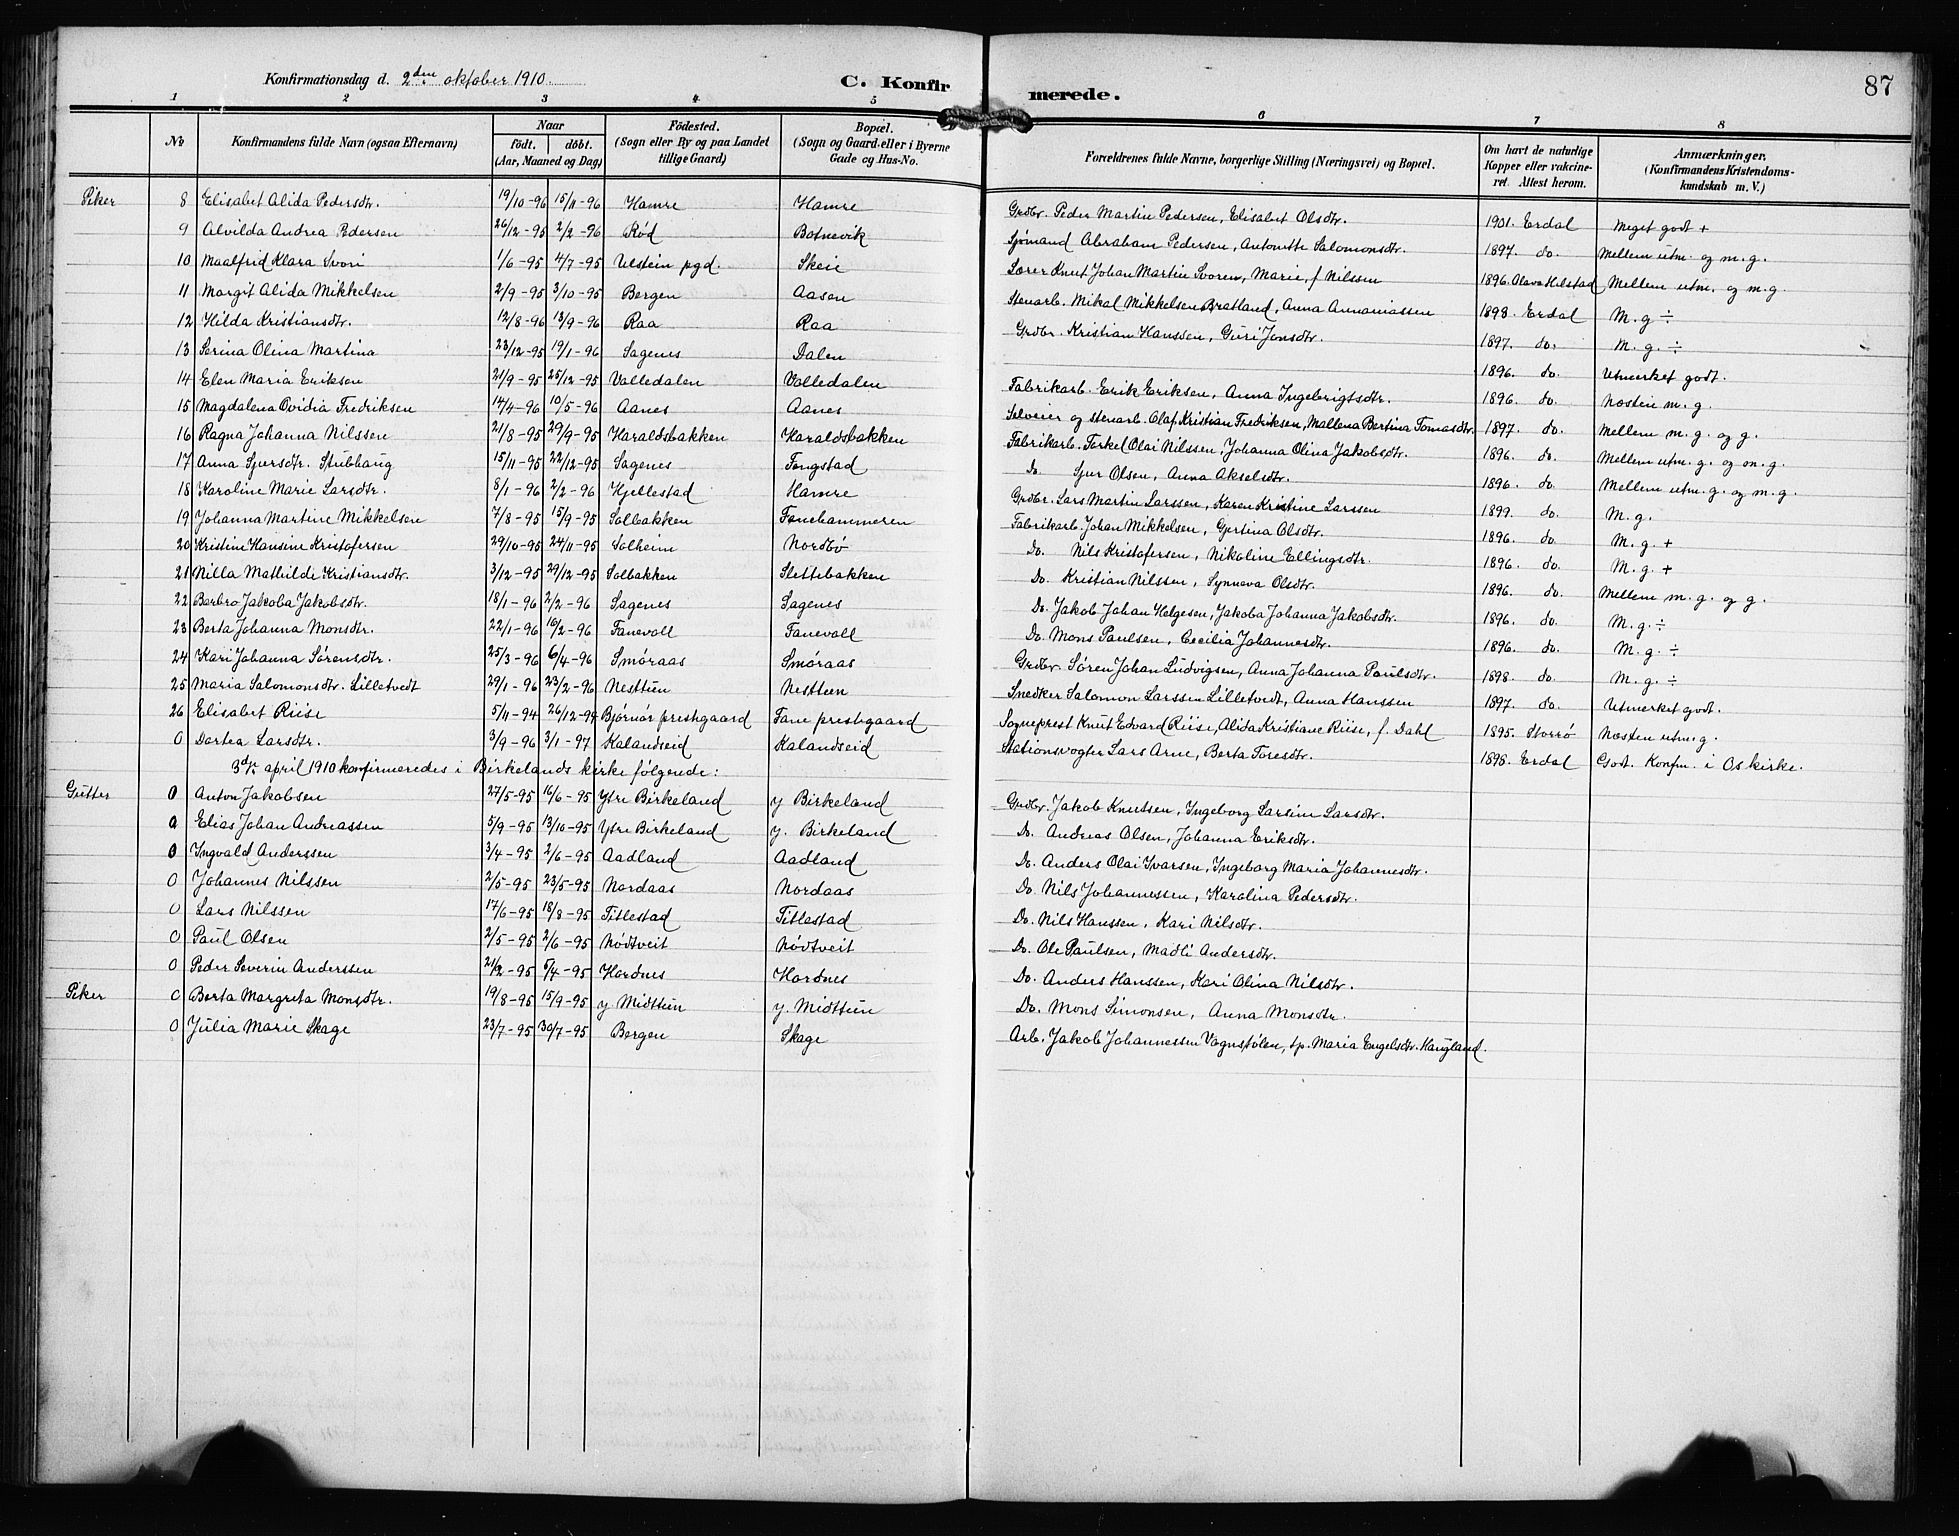 Konfirmationsdag d. 2den oktober 1910. C. Konfirmerede. 87
1 2 3 4 5 6 7 8
No Konfirmandens fulde Navn (ogsaa Efternavn) Naar født. døbt. (Aar, Maaned og Dag) Fødested. (Sogn eller By og paa Landet tillige Gaard) Bopæl. (Sogn og Gaard eller i Byerne Gade og Hus-No. Forældrenes fulde Navne, borgerlige Stilling (Næringsvei) og Bopæl. Om havt de naturlige Kopper eller vakcineret. Attest herom. Anmærkninger. (Konfirmandens Kristendomskundskab m. V.)
Piker 8 Elisabet Alida Pedersdtr. 19/10-96 15/11-96 Hamre Hamre Grdbr. Peder Martin Pedersen, Elisabet Olsdtr. 1901. Erdal Meget godt +
9 Alvilda Andrea Pedersen 26/12-95 2/2-96 Rød Botnevik Sjømand Abraham Pedersen, Antonette Salomonsdtr. 1897. do. Mellem utm. og m.g.
10 Maalfrid Klara Svori 1/6-95 4/7-95 Ulstein pgd. Skeie Lærer Knut Johan Martin Svoren, Marie, f. Nilssen 1896. Olava Helstad Mellem utm. og m.g.
11 Margit Alida Mikkelsen 2/9-95 3/10-95 Bergen Aasen Stenarb. Mikal Mikkelsen Bratland, Anna Annaniassen 1898. Erdal M.g. ÷
12 Hilda Kristiansdtr. 12/8-96 13/9-96 Raa Raa Grdbr. Kristian Hanssen, Guri Jonsdtr. 1897. do. M.g. ÷
13 Serina Olina Martina 23/12-95 19/1-96 Sagenes Dalen 1896. do. Utmerket godt.
14 Elen Maria Eriksen 21/9-95 25/12-95 Valledalen Valledalen Fabrikarb. Erik Eriksen, Anna Ingebrigtsdtr. 1896. do. Næsten m.g.
15 Magdalena Ovidia Fredriksen 14/4-96 10/5-96 Aanes Aanes Selveier og stenarb. Olaf Kristian Fredriksen, Mallena Bertina Tomasdtr. 1897. do. Mellem m.g. og g.
16 Ragna Johanna Nilssen 21/8-95 29/9-95 Haraldsbakken Haraldsbakken Fabrikarb. Terkel Olai Nilssen, Johanna Olina Jakobsdtr. 1896. do. Mellem utm.g. og m.g.
17 Anna Sjursdtr. Stubhaug 15/11-95 22/12-95 Sagenes Tongstad Do. Sjur Olsen, Anna Akselsdtr. 1896. do. Mellem utm.g. og m.g.
18 Karoline Marie Larsdtr. 8/1-96 2/2-96 Hjellestad Hamre Grdbr. Lars Martin Larssen, Karen Kristine Larssen 1899. do. M.g.
19 Johanna Martine Mikkelsen 7/8-95 15/9-95 Solbakken Fanehammeren Fabrikarb. Johan Mikkelsen, Gjertina Olsdtr. 1896. do. M.g. +
20 Kristine Hansine Kristofersen 29/10-95 24/11-95 Solheim Nordbø Do. Nils Kristofersen, Nikoline Ellingsdtr. 1896. do. M.g. +
21 Nilla Mathilde Kristiansdtr. 3/12-95 29/12-95 Solbakken Slettebakken Do. Kristian Nilssen, Synneva Olsdtr. 1896. do. Mellem m.g. og g.
22 Berbro Jakoba Jakobsdtr. 18/1-96 2/2-96 Sagenes Sagenes Do. Jakob Johan Helgesen, Jakoba Johanna Jakobsdtr. 1896. do. M.g. ÷
23 Berta Johanna Monsdtr. 22/1-96 16/2-96 Fanevoll Fanevoll Do. Mons Paulsen, Cecilia Johannesdtr. 1896. do. M.g. ÷
24 Kari Johanna Sørensdtr. 25/3-96 6/4-96 Smøraas Smøraas Grdbr. Søren Johan Ludvigsen, Anna Johanna Paulsdtr. 1898. do. M.g. ÷
25 Maria Salomonsdtr. Lilletvedt 29/1-96 23/2-96 Nesttun Nesttun Snedker Salomon Larssen Lilletvedt, Anna Hanssen 1897. do. Utmerket godt.
26 Elisabet Riise 5/11-94 26/12-94 Bjørnør prestegaard Fane prestegaard Sogneprest Knut Edvard Riise, Alida Kristiane Riise, f. Dahl 1895. Storrø Næsten utm.g.
0 Dortea Larsdtr. 3/9-96 3/1-97 Kalandseid Kalandseid Stationsvogter Lars Arne, Berta Toresdtr. 1898. Erdal Godt. Konfm. i Os kirke.
3die april 1910 konfirmeredes i Birkelands kirke følgende:
Gutter 0 Anton Jakobsen 27/5-95 16/6-95 Ytre Birkeland y Birkeland Grdbr. Jakob Knutsen, Ingeborg Larsine Larsdtr.
0 Elias Johan Andreassen 5/9-95 13/10-95 Ytre Birkeland y. Birkeland Do. Andreas Olsen, Johanna Eriksdtr.
0 Ingvald Anderssen 3/4-95 2/6-95 Aadland Aadland Do. Anders Olai Ivarsen, Ingeborg Maria Johannesdtr.
0 Johannes Nilssen 2/5-95 23/5-95 Nordaas Nordaas Do. Nils Johannessen, Karolina Pedersdtr.
0 Lars Nilssen 17/6-95 18/8-95 Titlestad Titlestad Do. Nils Hanssen, Kari Nilsdtr.
0 Paul Olsen 2/5-95 2/6-95 Nødtveit Nødtveit Do. Ole Paulsen, Madli Andersdtr.
0 Peder Severin Anderssen 21/2-95 5/4-95 Hordnes Hordnes Do. Anders Hanssen, Kari Olina Nilsdtr.
Piker 0 Berta Margreta Monsdtr. 19/8-95 15/9-95 y Midttun y. Midttun Do. Mons Simonsen, Anna Monsdtr.
0 Julia Marie Skage 23/7-95 30/7-95 Bergen Skage Arb. Jakob Johannessen Vognstølen, sp. Maria Engelsdtr. Haugland.